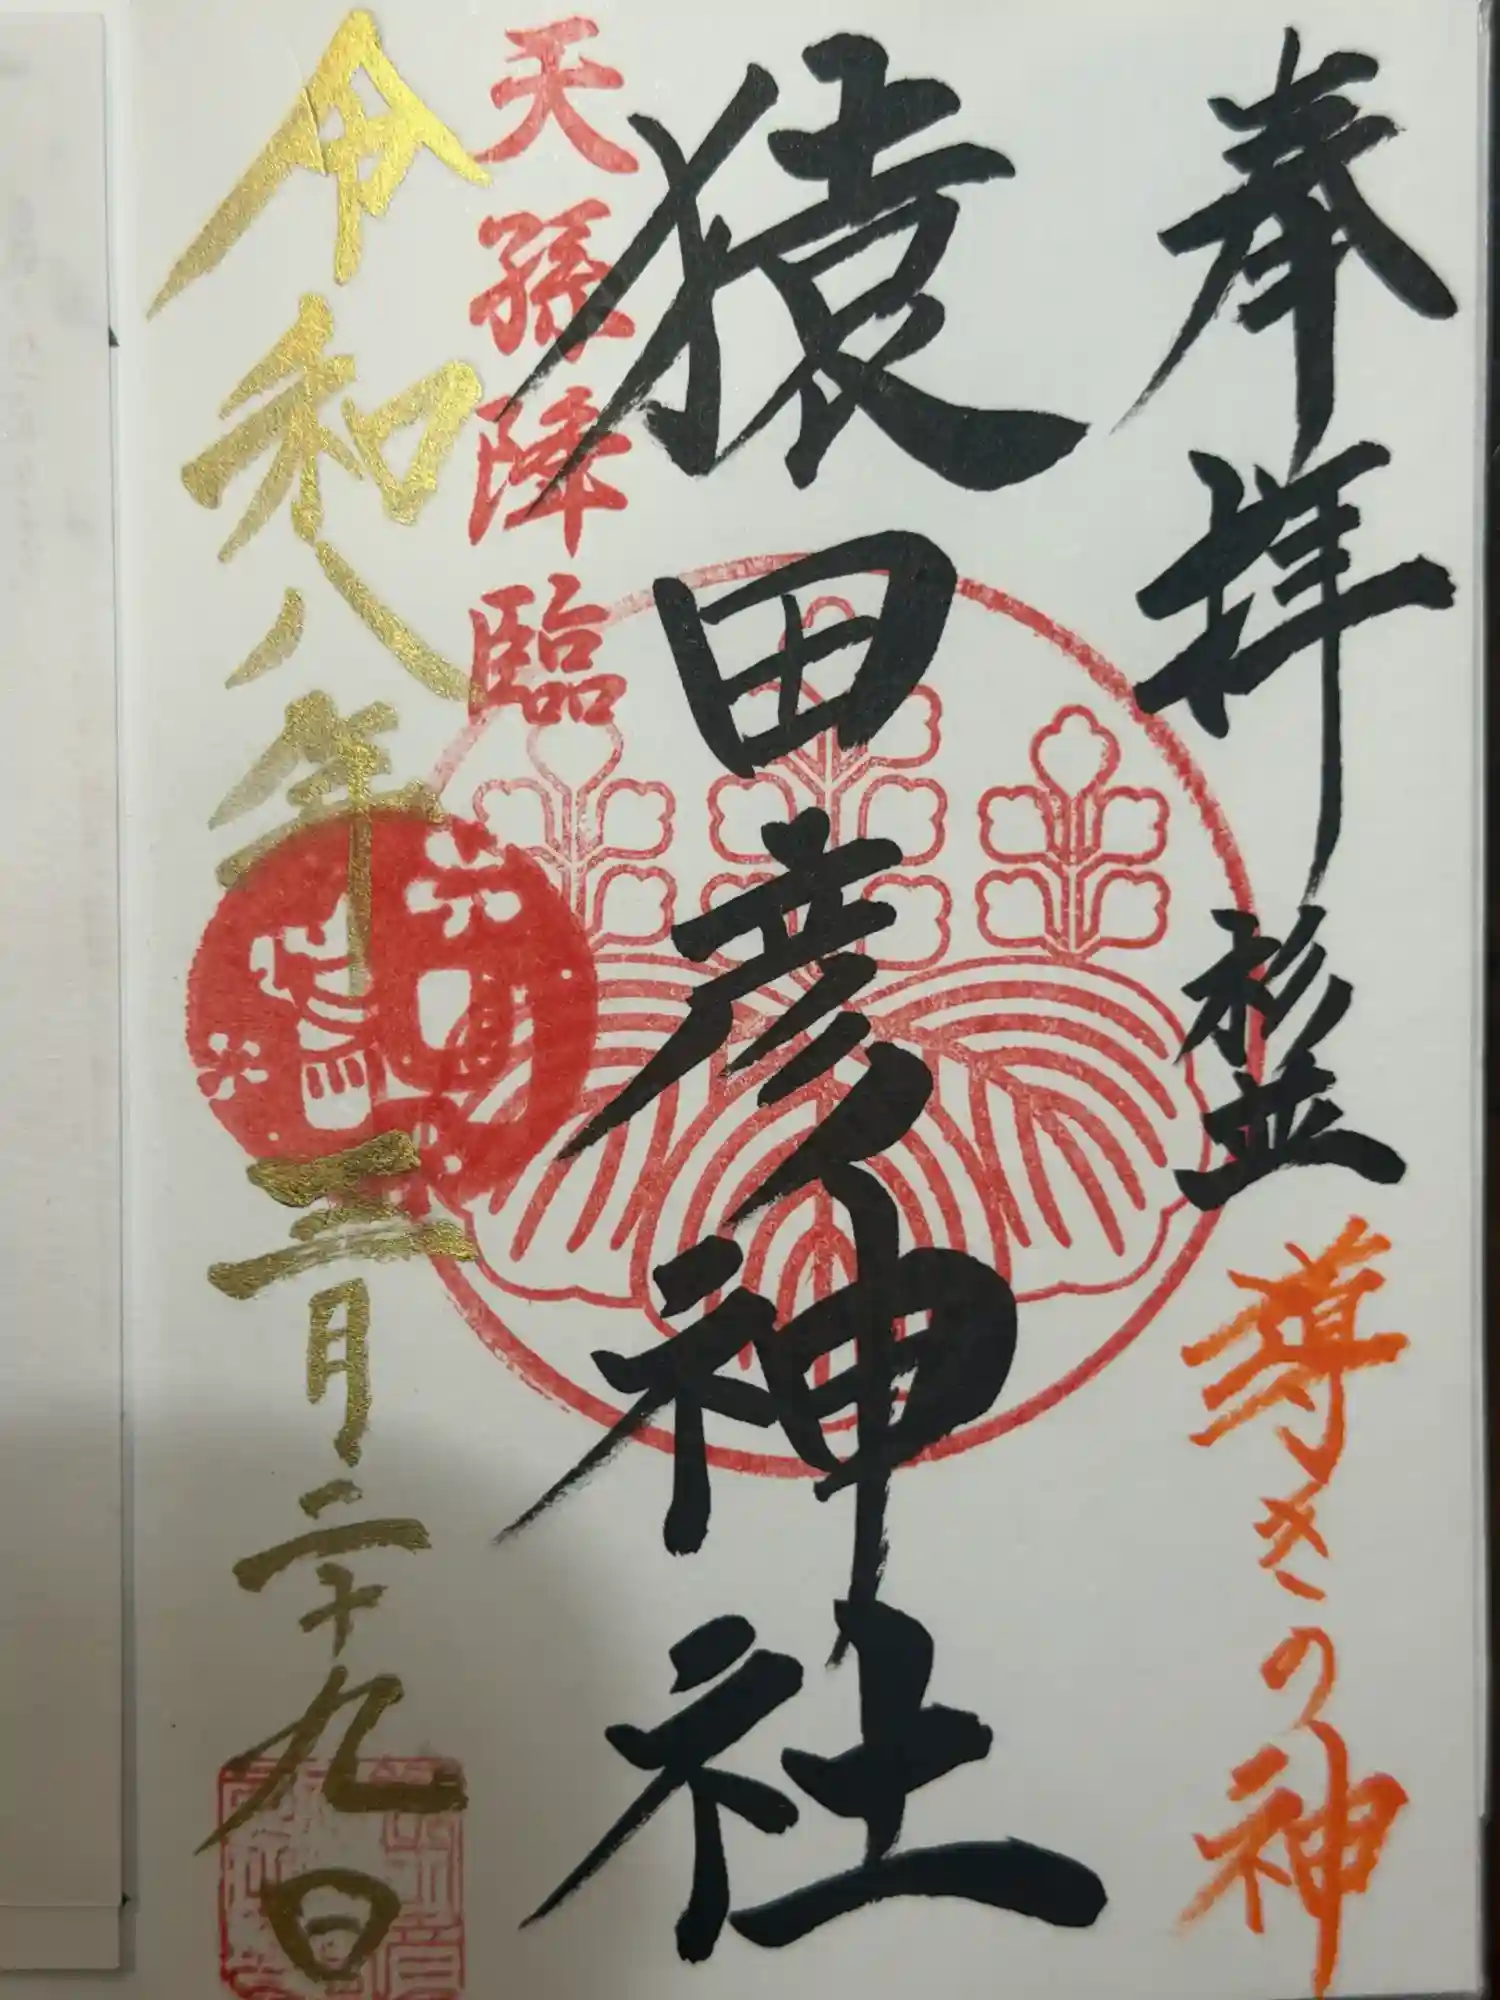 奉拝 杉並 導きの神
猿田彦神社
天孫降臨
令和八年三月二十九日